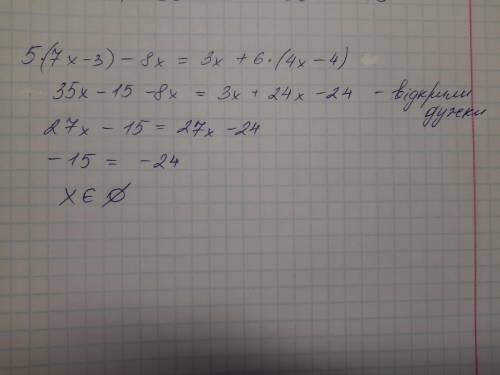 5·(7x-3) - 8x = 3x + 6·(4x-4)
35x - 15 - 8x = 3x + 24x - 24 - відкрили дужки
27x - 15 = 27x - 24
-15 = -24
x є ∅